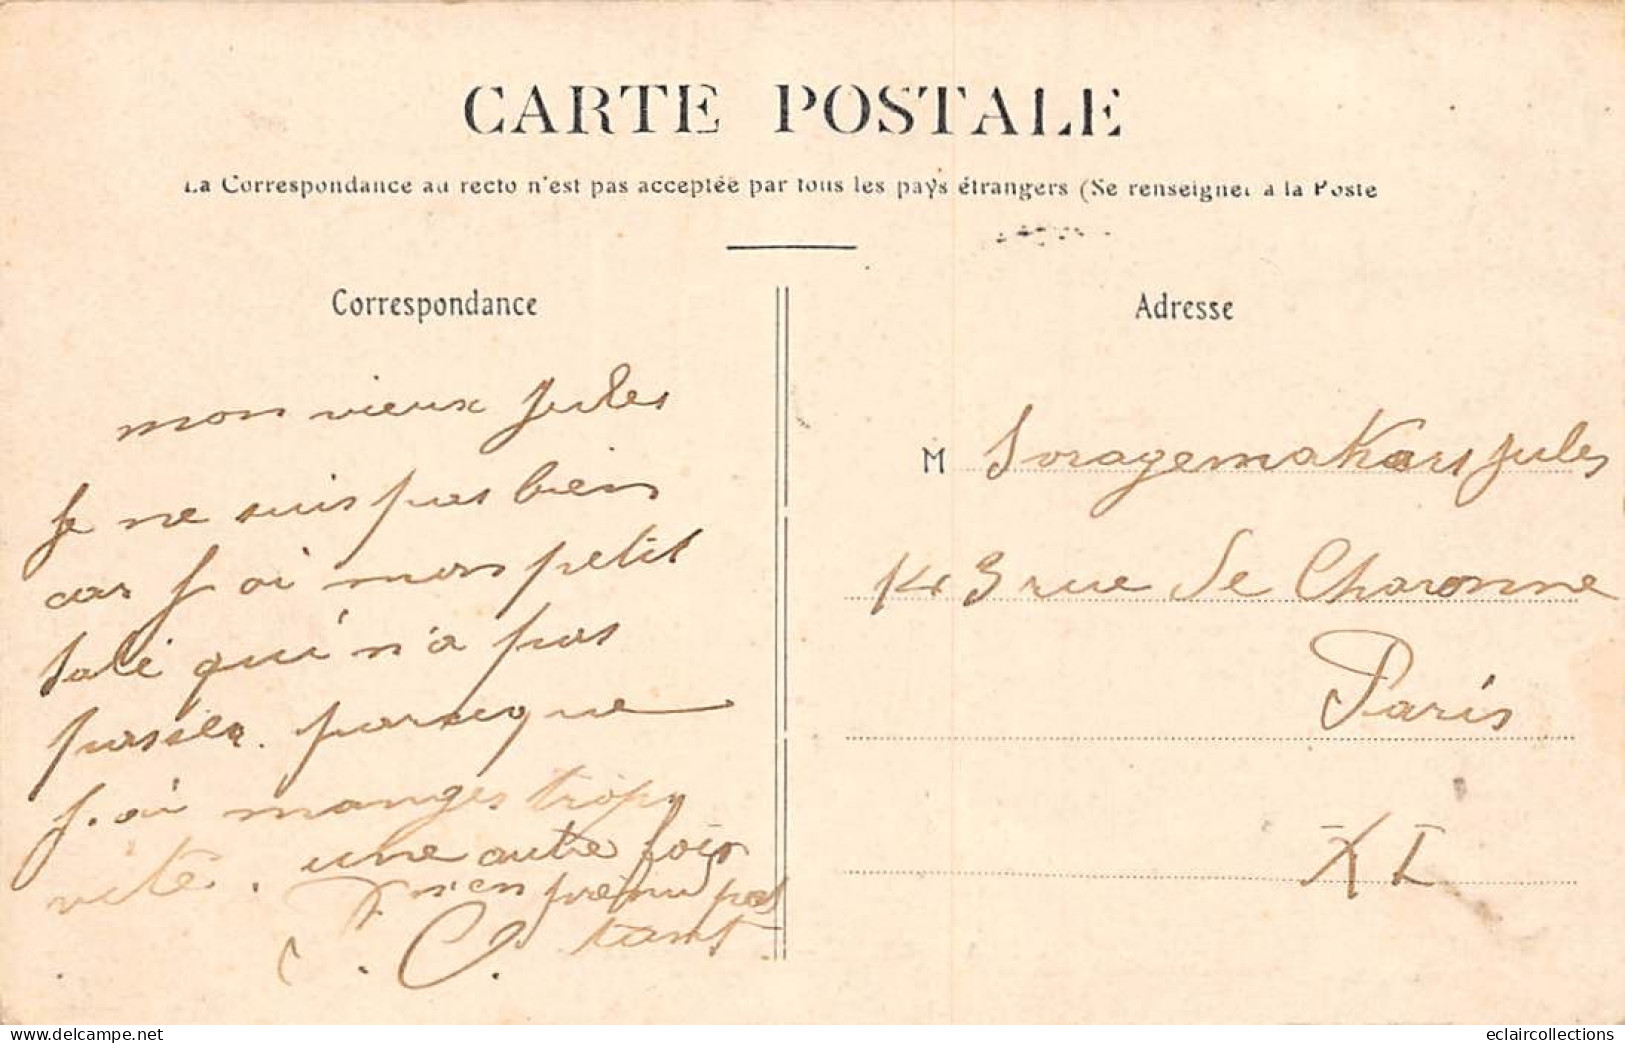 CARTE POSTALE
La Correspondance au recto n'est pas acceptée par tous les pays étrangers (Se renseigner à la Poste
Correspondance
Adresse
mon vieux Jules
Je ne suis pas bien
car J ai mon petit
salé qui n'a pas
passer. parceque
J. ai manger trop
vite. une autre fois
J n'en prénd pas
tant
C.
M Soragemakers Jules
143 rue de Charonne
Paris
XI
www.delcampe.net
eclaircollections